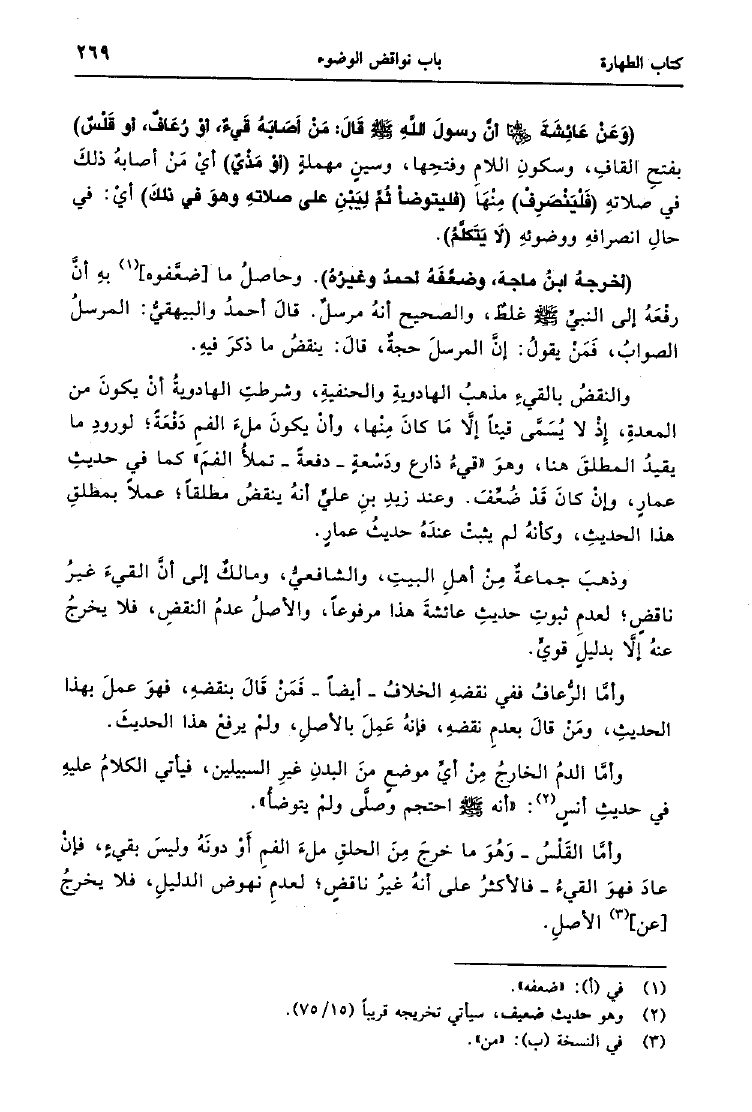 كتاب الطهارة باب نواقض الوضوء ٢٦٩
(وَعَنْ عَائِشَةَ رضي الله عنها أنَّ رسولَ اللَّهِ ﷺ قَالَ: مَنْ أصَابَهُ قَيءٌ، أوْ رُعَافٌ، أو قَلْسٌ)
بفتحِ القافِ، وسكونِ اللامِ وفتحِها، وسينٍ مهملةٍ (أوْ مَذْيٌ) أيْ مَنْ أصابهُ ذلكَ
في صلاتهِ (فَلْيَنْصَرِفْ) مِنْهَا (فليتوضأ ثُمَّ لِيَبْنِ على صلاتهِ وهوَ في ذلكَ) أيْ: في
حالِ انصرافهِ ووضوئهِ (لَا يَتَكلَّمُ).
(أخرجهُ ابنُ ماجهْ، وضعَّفَهُ أحمدُ وغيرُهُ). وحاصلُ ما [ضعَّفوه](١) بهِ أنَّ
رفْعَهُ إلى النبيِّ ﷺ غلطٌ، والصحيح أنهُ مرسلٌ. قالَ أحمدُ والبيهقيُّ: المرسلُ
الصوابُ، فَمَنْ يقولُ: إنَّ المرسلَ حجةٌ، قالَ: ينقضُ ما ذكرَ فيهِ.
والنقضُ بالقيءِ مذهبُ الهادويةِ والحنفيةِ، وشرطتِ الهادويةُ أنْ يكونَ من
المعدةِ، إذْ لا يُسَمَّى قيئاً إلَّا مَا كانَ مِنْها، وأنْ يكونَ ملءَ الفمِ دَفْعَةً؛ لورودِ ما
يقيدُ المطلقَ هنا، وهوَ «قيءُ ذارع ودَسْعةٍ ـ دفعةً ـ تملأُ الفمَ» كما في حديثِ
عمارٍ، وإنْ كانَ قَدْ ضُعِّفَ. وعند زيدِ بنِ عليٍّ أنهُ ينقضُ مطلقاً؛ عملاً بمطلقِ
هذا الحديثِ، وكأنهُ لم يثبتْ عندَهُ حديثُ عمارٍ.
وذهبَ جماعةٌ مِنْ أهلِ البيتِ، والشافعيُّ، ومالكٌ إلى أنَّ القيءَ غيرُ
ناقضٍ؛ لعدمِ ثبوتِ حديثِ عائشةَ هذا مرفوعاً، والأصلُ عدمُ النقضِ، فلا يخرجُ
عنهُ إلَّا بدليلٍ قويٍّ.
وأمَّا الرُّعافُ ففي نقضهِ الخلافُ ـ أيضاً ـ فَمَنْ قَالَ بنقضهِ، فهوَ عملَ بهذا
الحديثِ، ومَنْ قالَ بعدمِ نقضهِ، فإنهُ عَمِلَ بالأصلِ، ولمْ يرفعْ هذا الحديثَ.
وأمَّا الدمُ الخارجُ مِنْ أيِّ موضعٍ منَ البدنِ غيرِ السبيلين، فيأتي الكلامُ عليهِ
في حديثِ أنسٍ(٢): «أنه ﷺ احتجم وصلَّى ولمْ يتوضأْ».
وأمَّا القَلْسُ ـ وَهُوَ ما خرجَ مِنَ الحلقِ ملءَ الفمِ أَوْ دونَهُ وليسَ بقيءٍ، فإنْ
عادَ فهوَ القيءُ ـ فالأكثرُ على أنهُ غيرُ ناقضٍ؛ لعدمِ نهوضِ الدليلِ، فلا يخرجُ
[عن](٣) الأصلِ.
(١) في (أ): «ضعفه».
(٢) وهو حديث ضعيف، سيأتي تخريجه قريباً (٧٥/١٥).
(٣) في النسخة (ب): «من».